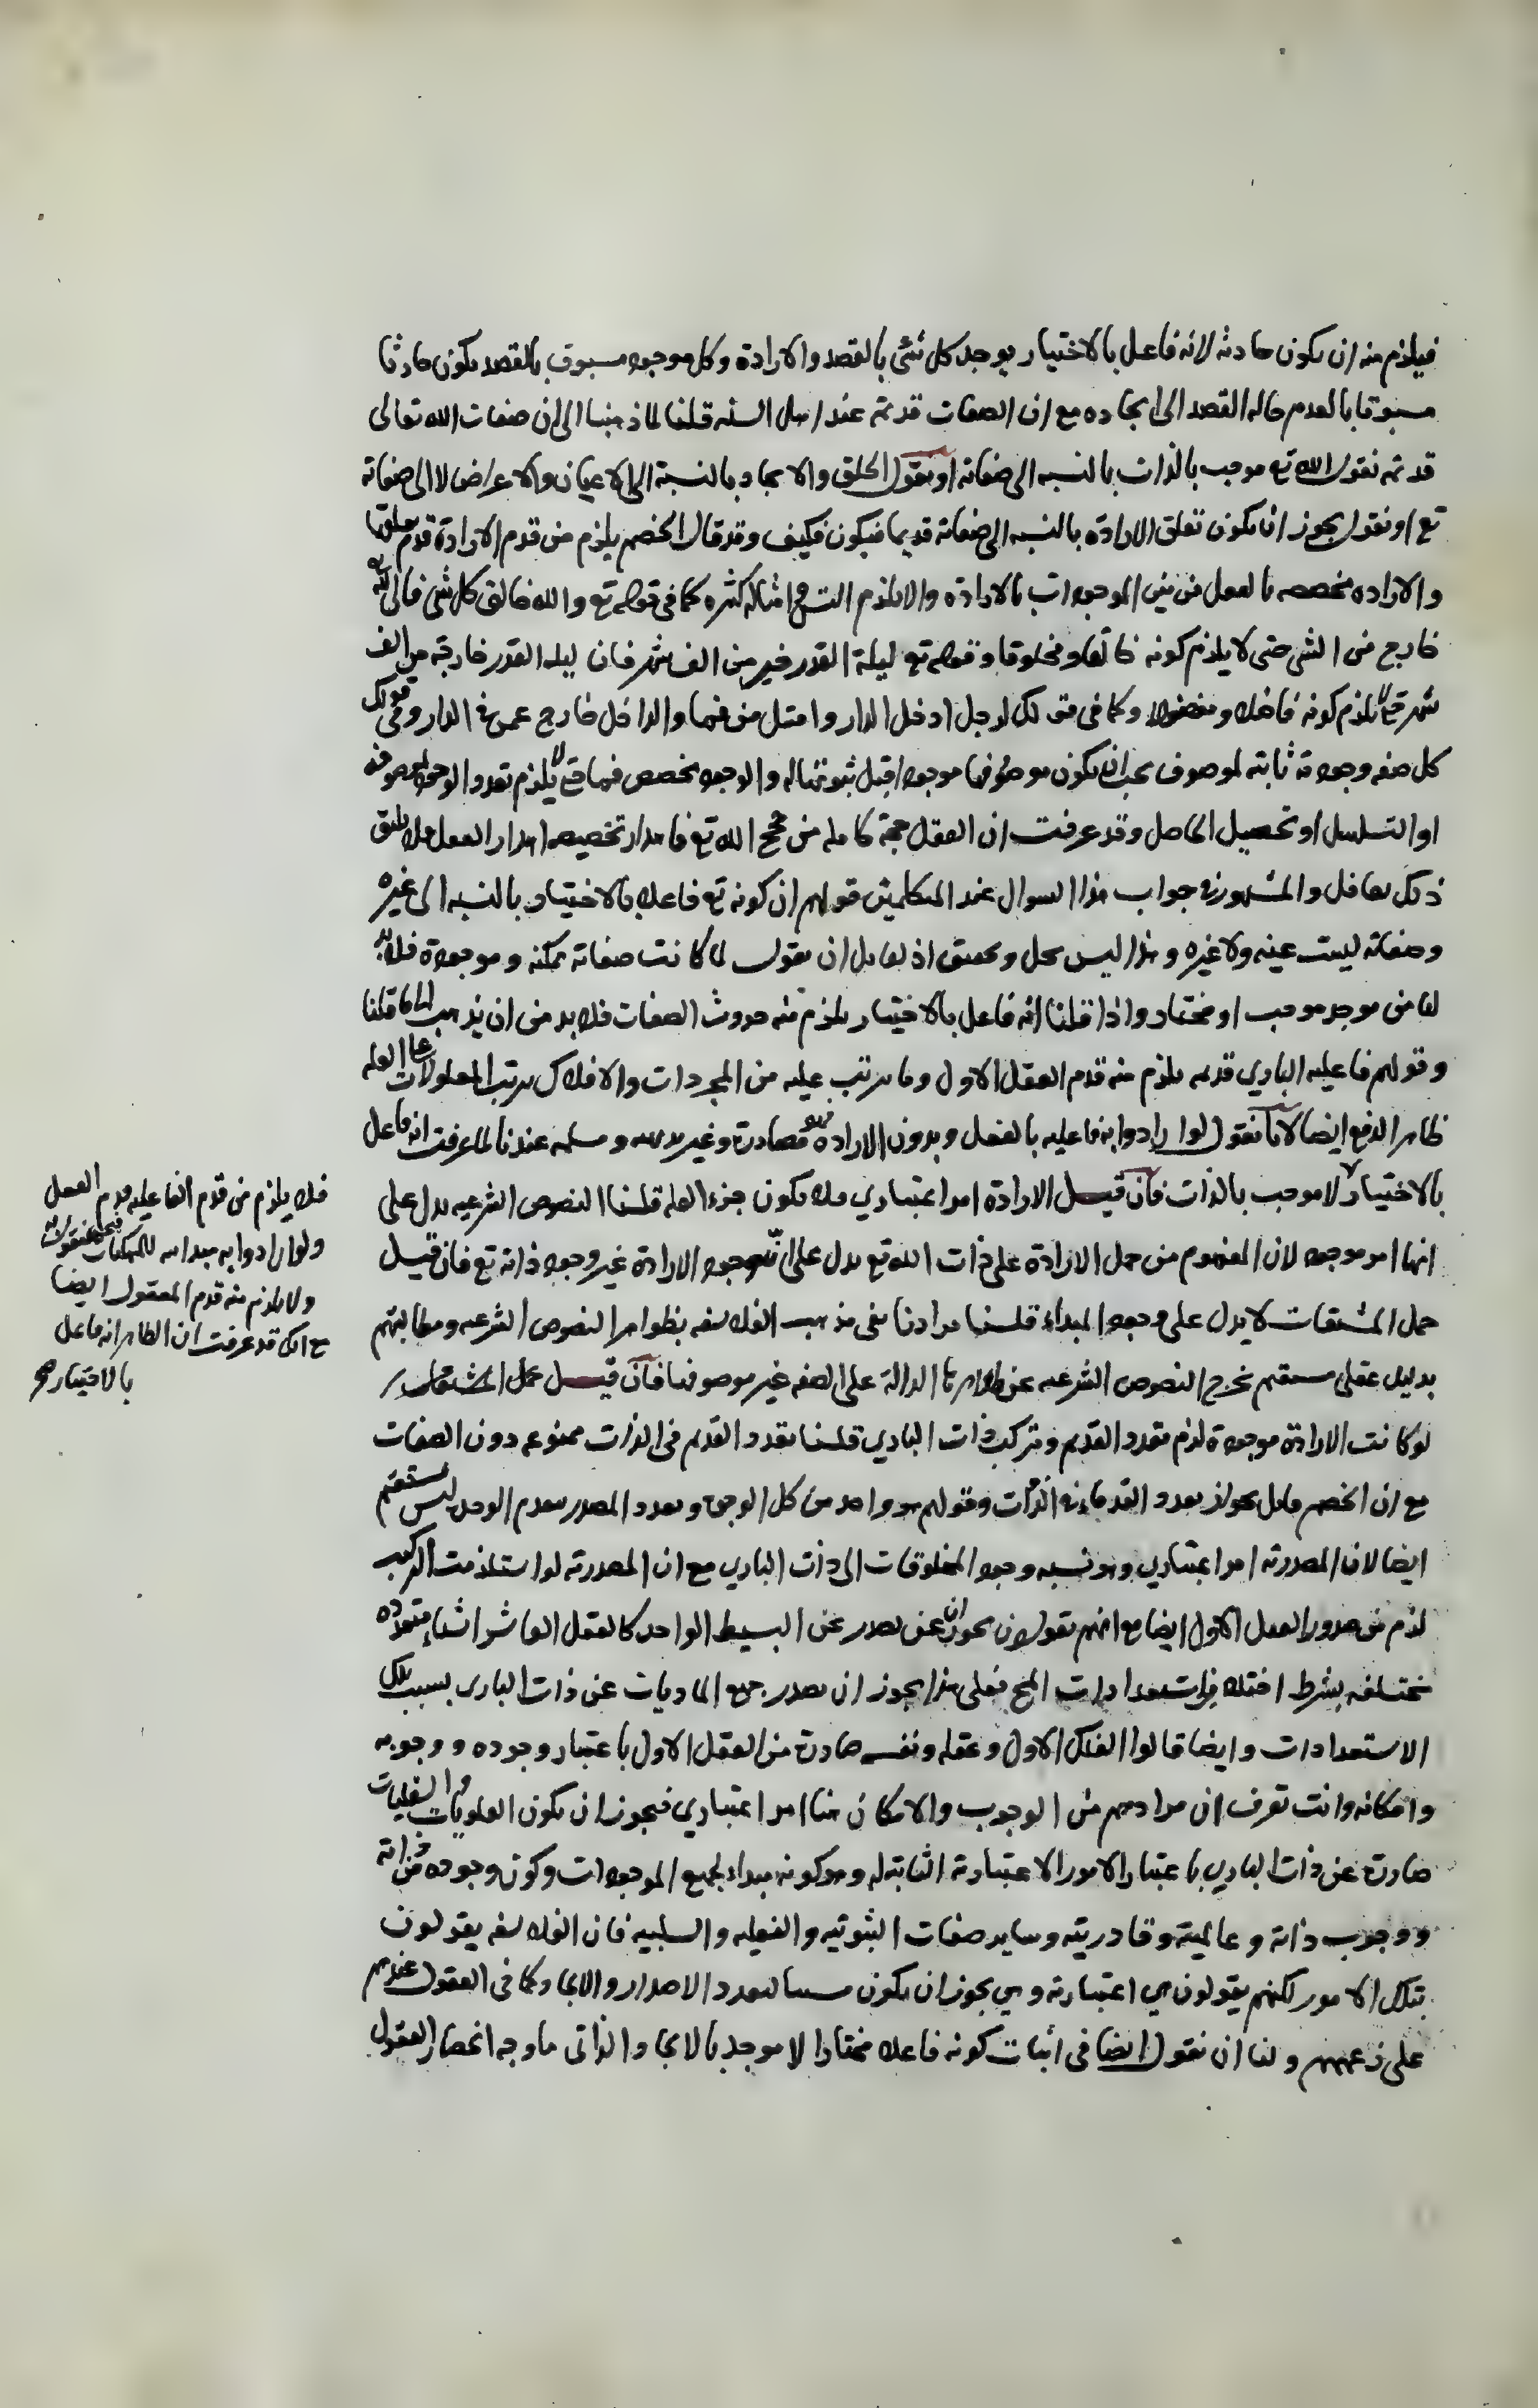 فيلزم منه ان يكون حادثه لانه فاعل بالاختيار يوجد كل شئ بالقصد والارادة وكل موجود مسبوق بالقصد يكون حادثا
مسبوقا بالعدم حاله القصد الى ايجاده مع ان الصفات قديمة عند اهل السنه قلنا لما ذهبنا الى ان صفات الله تعالى
قديمه نقول الله تع موجب بالذات بالنسبه الى صفاته او نقول الخلق والايجاد بالنسبة الى الاعيان والاعراض لا الى صفاته
تع او نقول يجوز ان يكون تعلق الارادة بالنسبه الى صفاته قديما فيكون فكيف وقد قال الخصم يلزم من قدم الارادة قدم تعلقها
والاراده مخصصه بالعقل من بين الموجودات بالارادة والا يلزم امثاله كثيره كما في قوله تع والله خالق كل شئ
خارج من الشئ حتى لا يلزم كونه خالقا ومخلوقا وقوله تع ليلة القدر خير من الف شهر فان ليله القدر خارجة من الف
شهر حتى لا يلزم كونه فاضلا ومفضولا وكما في قولك لرجل ادخل الدار وامثل من فيها والداخل خارج عمن في الدار وفي قولك
كل صفه وجودية ثابته لموصوف يجب ان يكون موصوفها موجودا قبل ثبوتها له والوجود مخصص فيها حتى لا يلزم تعدد الوجود لموصوفه
او التسلسل او تحصيل الحاصل وقد عرفت ان العقل حجة كامله من حجج الله تع فاهدار تخصيصه اهدار العقل فلا يليق
ذلك بعاقل والمشهور في جواب هذا السوال عند المتكلمين قولهم ان كونه تع فاعلا بالاختيار بالنسبه الى غيره
وصفاته ليست عينه ولا غيره وهذا ليس بحل وتحقيق اذ لقايل ان يقول لما كانت صفاته ممكنه وموجودة فلا بد
لها من موجد موجب او مختار واذا قلنا انه فاعل بالاختيار يلزم منه حدوث الصفات فلا بد من ان يذهب الى ما قلنا
وقولهم فاعليه الباري قديمه يلزم منه قدم العقل الاول وما يترتب عليه من المجردات والافلاك ترتب المعلولات على العله
ظاهر الدفع ايضا لانا نقول لو ارادوا به فاعليه بالفعل وبدون الارادة فهو مصادرة وغير مسلمه عندنا لما عرفت انه فاعل
بالاختيار لا موجب بالذات فان قيل الارادة امر اعتباري فلا يكون جزء العله قلنا النصوص الشرعيه يدل على
انها امر موجود لان المفهوم من حمل الارادة على ذات الله تع يدل على ان وجود الارادة غير وجود ذاته تع فان قيل
حمل المشتقات لا يدل على وجود المبداء قلنا مرادنا نفي مذهب الفلاسفه بظواهر النصوص الشرعيه ومطالبتهم
بدليل عقلي مستقيم يخرج النصوص الشرعيه عن ظواهرها الدالة على الصفه غير موصوفها فان قيل حمل المشتقات
لو كانت الارادة موجودة لزم تعدد القديم وتركب ذات الباري قلنا تعدد القديم في الذات ممنوعه دون الصفات
مع ان الخصم قايل بجواز تعدد القدماء في الذات وقولهم هو واحد من كل الوجوه وتعدد المصدر يعدم الوحدة ليس بمستقيم
ايضا لان المصدرية امر اعتباري وهو نسبه وجود المخلوقات الى ذات الباري مع ان المصدرية لو استلزمت التركيب
لزم من صدور العقل الاول ايضا مع انهم يقولون يجوز ان يصدر عن البسيط الواحد كالعقل العاشر اشياء متعدده
مختلفه بشرط اختلاف استعدادات فعلى هذا يجوز ان يصدر جميع الماديات عن ذات الباري بسبب تلك
الاستعدادات وايضا قالوا الفلك الاول وعقله ونفسه صادرة من العقل الاول باعتبار وجوده ووجوبه
وامكانه وانت تعرف ان مرادهم من الوجوب والامكان هنا امر اعتباري فيجوز ان يكون العلويات والسفليات
صادرة عن ذات الباري باعتبار الامور الاعتبارية الثابته له وهو كونه مبداء لجميع الموجودات وكون وجوده من ذاته
ووجوب ذاته وعالميته وقادريته وساير صفات الثبوتيه والفعليه والسلبيه فان الفلاسفه يقولون
بتلك الامور لكنهم يقولون هي اعتبارية وهي يجوز ان يكون سببا لتعدد الاصدار والايجاد كما في العقول عندهم
على زعمهم ولنا ان نقول ايضا في اثبات كونه فاعلا مختارا لا موجد بالايجاد الذاتي ما وجه انحصار العقول
فلا يلزم من قدم الفاعليه قدم العقل
ولو ارادوا به مبدائيه للممكنات فنقول
ولا يلزم منه قدم المعقول ايضا
مع انك قد عرفت ان الظاهر انه فاعل
بالاختيار صح